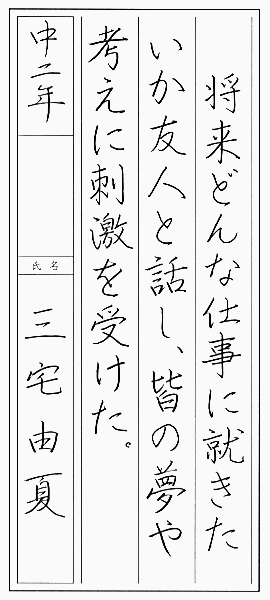 将来どんな仕事に就きた
いか友人と話し、皆の夢や
考えに刺激を受けた。
中二年
氏名
三宅由夏